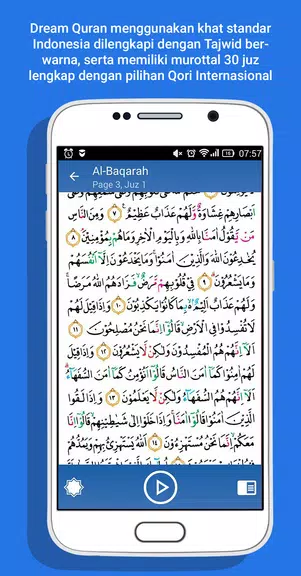 Dream Quran menggunakan khat standar
Indonesia dilengkapi dengan Tajwid ber-
warna, serta memiliki murottal 30 juz
lengkap dengan pilihan Qori Internasional
16 07:57
Al-Baqarah
Page 3, Juz 1
اَبْصَارِهِمْ غِشَاوَةٌ وَّلَهُمْ عَذَابٌ عَظِيْمٌ ٧ وَمِنَ النَّاسِ
مَنْ يَّقُوْلُ اٰمَنَّا بِاللّٰهِ وَبِالْيَوْمِ الْاٰخِرِ وَمَا هُمْ بِمُؤْمِنِيْنَ ٨
يُخٰدِعُوْنَ اللّٰهَ وَالَّذِيْنَ اٰمَنُوْا وَمَا يَخْدَعُوْنَ اِلَّآ اَنْفُسَهُمْ
وَمَا يَشْعُرُوْنَ ٩ فِيْ قُلُوْبِهِمْ مَّرَضٌ فَزَادَهُمُ اللّٰهُ مَرَضًا
وَلَهُمْ عَذَابٌ اَلِيْمٌ بِمَا كَانُوْا يَكْذِبُوْنَ ١٠ وَاِذَا قِيْلَ لَهُمْ
لَا تُفْسِدُوْا فِى الْاَرْضِ قَالُوْٓا اِنَّمَا نَحْنُ مُصْلِحُوْنَ ١١
اَلَآ اِنَّهُمْ هُمُ الْمُفْسِدُوْنَ وَلٰكِنْ لَّا يَشْعُرُوْنَ ١٢ وَاِذَا قِيْلَ
لَهُمْ اٰمِنُوْا كَمَآ اٰمَنَ النَّاسُ قَالُوْٓا اَنُؤْمِنُ كَمَآ اٰمَنَ السُّفَهَآءُ
اَلَآ اِنَّهُمْ هُمُ السُّفَهَآءُ وَلٰكِنْ لَّا يَعْلَمُوْنَ ١٣ وَاِذَا لَقُوا
الَّذِيْنَ اٰمَنُوْا قَالُوْٓا اٰمَنَّا وَاِذَا خَلَوْا اِلٰى شَيٰطِيْنِهِمْ قَالُوْٓا اِنَّا
مَعَكُمْ اِنَّمَا نَحْنُ مُسْتَهْزِءُوْنَ ١٤ اَللّٰهُ يَسْتَهْزِئُ بِهِمْ وَيَمُدُّهُمْ